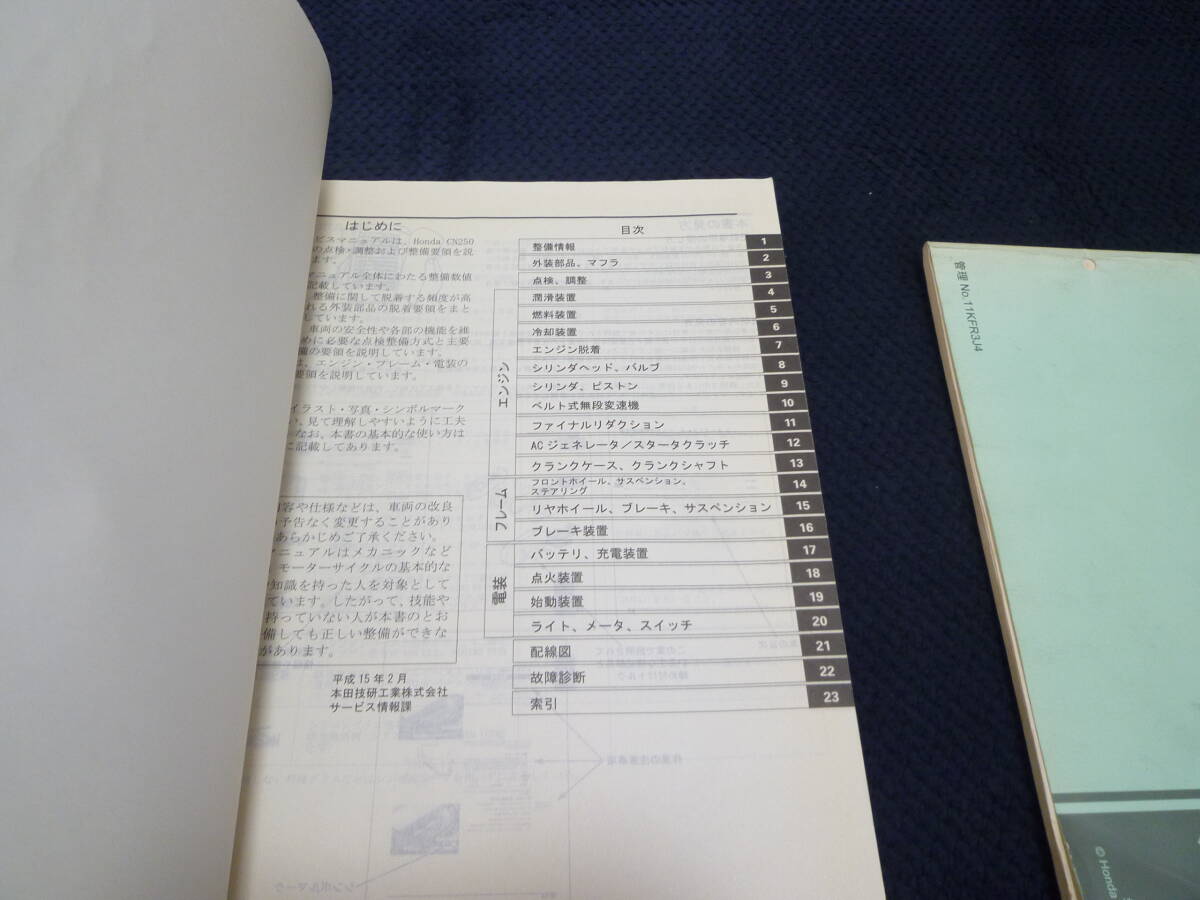 はじめに
ビスマニュアルは、Honda CN250
の点検・調整および整備要領を説
ます。
マニュアル全体にわたる整備数値
記載しています。
整備に関して脱着する頻度が高
れる外装部品の脱着要領をまと
しています。
車両の安全性や各部の機能を維
めに必要な点検整備方式と主要
備の要領を説明しています。
は、エンジン・フレーム・電装の
要領を説明しています。
イラスト・写真・シンボルマーク
い、見て理解しやすいように工夫
なお、本書の基本的な使い方は
に記載してあります。
内容や仕様などは、車両の改良
予告なく変更することがあり
あらかじめご了承ください。
マニュアルはメカニックなど
モーターサイクルの基本的な
知識を持った人を対象として
ています。したがって、技能や
持っていない人が本書のとお
備しても正しい整備ができな
があります。
平成15年2月
本田技研工業株式会社
サービス情報課
目次
整備情報 1
外装部品、マフラ 2
点検、調整 3
エンジン
潤滑装置 4
燃料装置 5
冷却装置 6
エンジン脱着 7
シリンダヘッド、バルブ 8
シリンダ、ピストン 9
ベルト式無段変速機 10
ファイナルリダクション 11
ACジェネレータ/スタータクラッチ 12
クランクケース、クランクシャフト 13
フレーム
フロントホイール、サスペンション、
ステアリング 14
リヤホイール、ブレーキ、サスペンション 15
ブレーキ装置 16
電装
バッテリ、充電装置 17
点火装置 18
始動装置 19
ライト、メータ、スイッチ 20
配線図 21
故障診断 22
索引 23
管理 No.11KFR3J4
© Honda